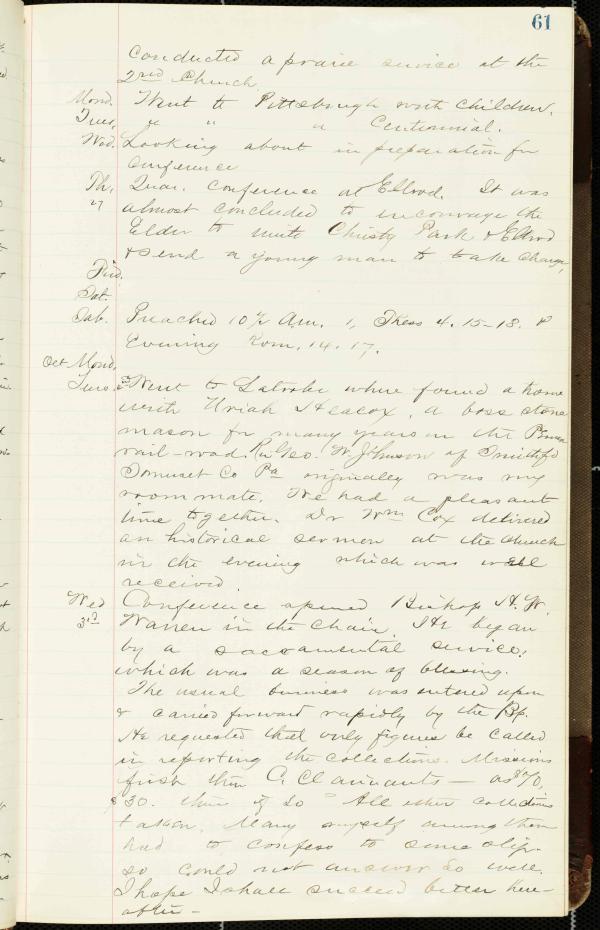 61
conducted a praise service at the
2nd Church
Mond. Went to Pittsburgh with children.
Tues, " " " Centennial.
Wed. Looking about in preparation for
Conference
Th, Quar. Conference at Ellrod. It was
27 almost concluded to encourage the
Elder to unite Christy Park & Ellrod
& send a young man to take charge,
Frid.
Sat.
Sab. Preached 10½ Am. 1, Thess 4. 15-18. &
Evening Rom. 14. 17.
Oct Mond,
Tues. 2d Went to Latrobe where found a home
with Uriah Heacox, a boss stone
mason for many years on the Penna
rail-road. Rev Geo. W. Johnson of Smithfd
Somerset Co Pa originally was my
roommate. We had a pleasant
time together. Dr Wm Cox delivered
an historical sermon at the church
in the evening which was well
received
Wed Conference opened Bishop H. W.
3rd Warren in the chair. He began
by a sacramental service,
which was a season of blessing.
The usual business was entered upon
& carried forward rapidly by the Bp.
He requested that only figures be called
in reporting the collections. Missions
first then C. Claimants — as $70,
$30. then if so " All other collections
taken. Many myself among them
had to confess to some slip.
so could not answer so well.
I hope I shall succeed better here-
after -